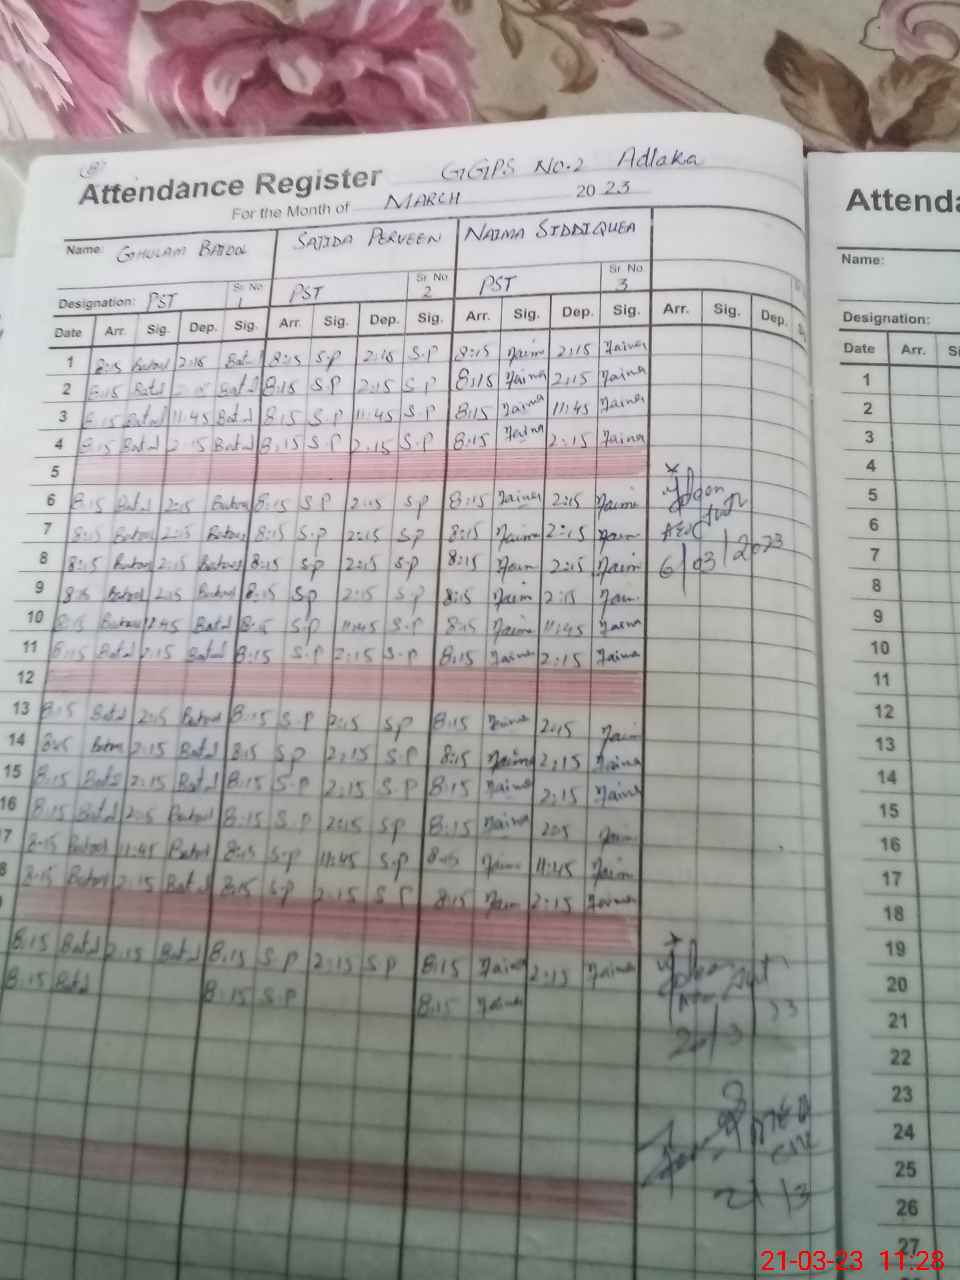 8
Attendance Register GGPS No.2 Adlaka
For the Month of MARCH 2023
Name: GHULAM BATOOL SAJIDA PERVEEN NAIMA SIDDIQUEA
Designation: PST Sr. No 1 PST Sr. No 2 PST Sr. No 3
Date Arr. Sig. Dep. Sig. Arr. Sig. Dep. Sig. Arr. Sig. Dep. Sig. Arr. Sig. Dep.
1 8:15 Batool 2:15 Batool 8:15 S.P 2:15 S.P 8:15 Naima 2:15 Naima
2 8:15 Batool 2:15 Batool 8:15 S.P 2:15 S.P 8:15 Naima 2:15 Naima
3 8:15 Batool 11:45 Batool 8:15 S.P 11:45 S.P 8:15 Naima 11:45 Naima
4 8:15 Batool 2:15 Batool 8:15 S.P 2:15 S.P 8:15 Naima 2:15 Naima
5
6 8:15 Batool 2:15 Batool 8:15 S.P 2:15 S.P 8:15 Naima 2:15 Naima
7 8:15 Batool 2:15 Batool 8:15 S.P 2:15 S.P 8:15 Naima 2:15 Naima
6/03/2023
8 8:15 Batool 2:15 Batool 8:15 S.P 2:15 S.P 8:15 Naima 2:15 Naima
9 8:15 Batool 2:15 Batool 8:15 S.P 2:15 S.P 8:15 Naima 2:15 Naima
10 8:15 Batool 11:45 Batool 8:15 S.P 11:45 S.P 8:15 Naima 11:45 Naima
11 8:15 Batool 2:15 Batool 8:15 S.P 2:15 S.P 8:15 Naima 2:15 Naima
12
13 8:15 Batool 2:15 Batool 8:15 S.P 2:15 S.P 8:15 Naima 2:15 Naima
14 8:15 Batool 2:15 Batool 8:15 S.P 2:15 S.P 8:15 Naima 2:15 Naima
15 8:15 Batool 2:15 Batool 8:15 S.P 2:15 S.P 8:15 Naima 2:15 Naima
16 8:15 Batool 2:15 Batool 8:15 S.P 2:15 S.P 8:15 Naima 2:15 Naima
7 8:15 Batool 11:45 Batool 8:15 S.P 11:45 S.P 8:15 Naima 11:45 Naima
8 8:15 Batool 2:15 Batool 8:15 S.P 2:15 S.P 8:15 Naima 2:15 Naima
8:15 Batool 2:15 Batool 8:15 S.P 2:15 S.P 8:15 Naima 2:15 Naima
8:15 Batool 8:15 S.P 8:15 Naima
20/3
21/3
Attenda
Name:
Designation:
Date Arr. Si
1
2
3
4
5
6
7
8
9
10
11
12
13
14
15
16
17
18
19
20
21
22
23
24
25
26
27
21-03-23 11:28